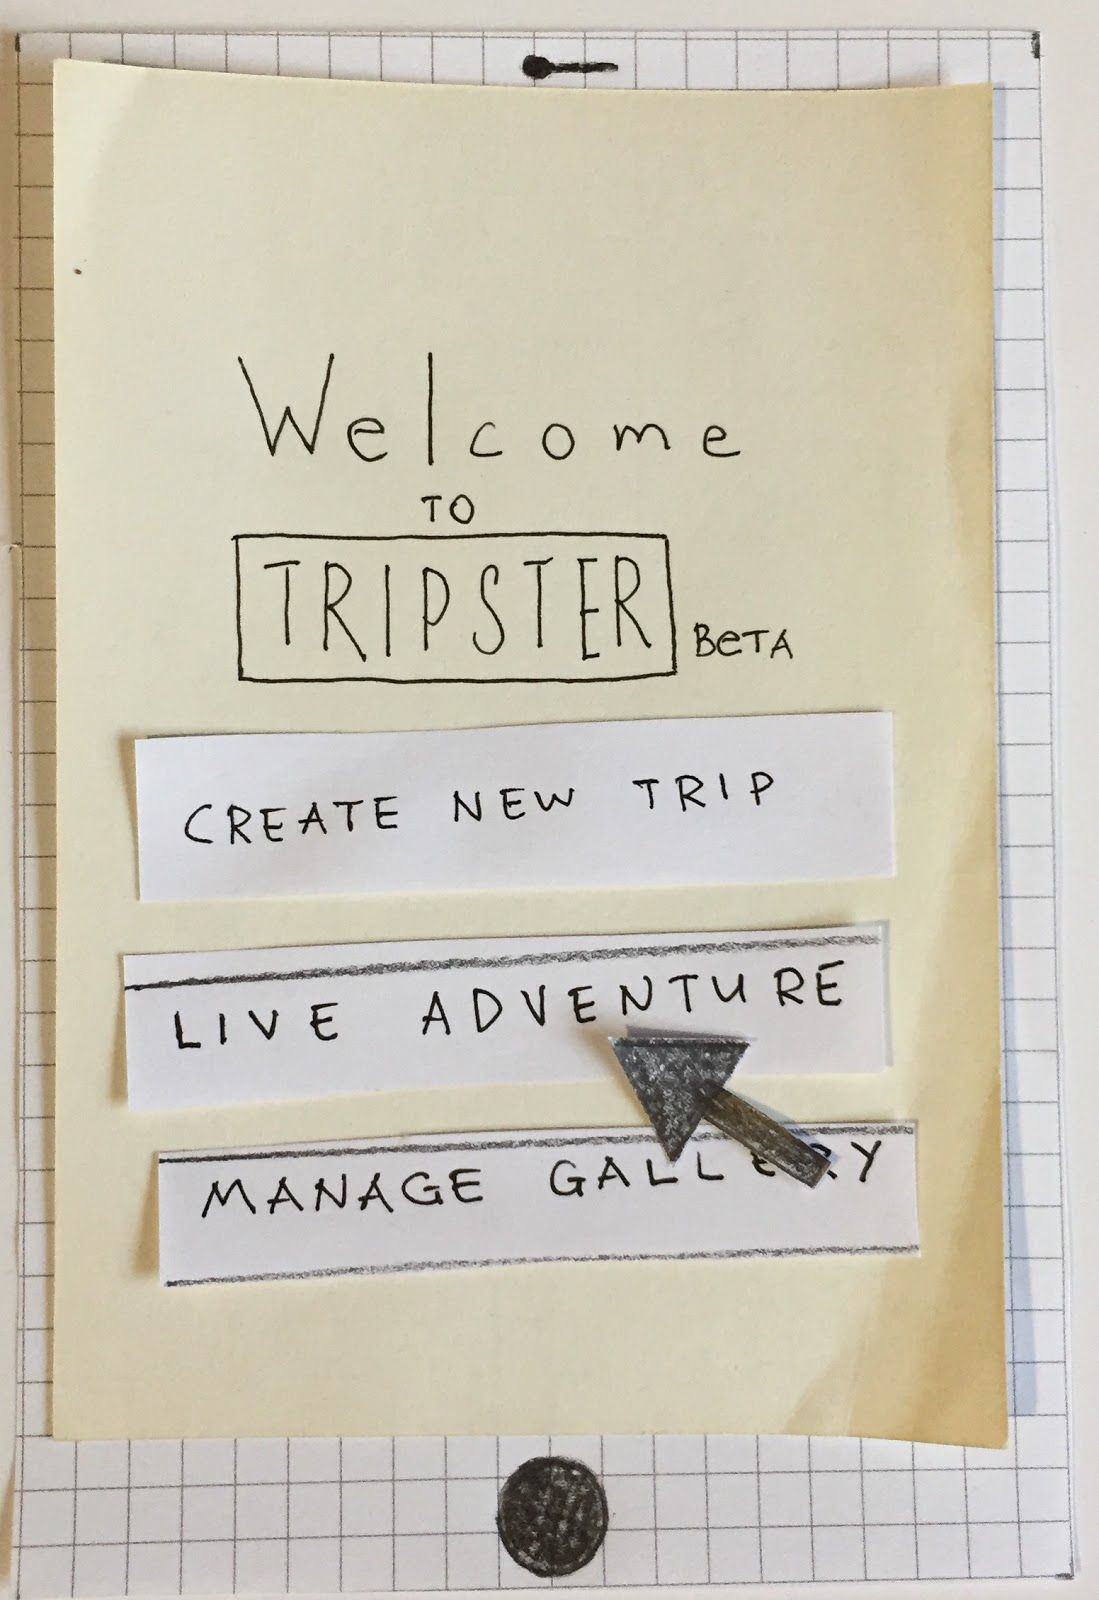 Welcome
TO
TRIPSTER BETA
CREATE NEW TRIP
LIVE ADVENTURE
MANAGE GALLERY